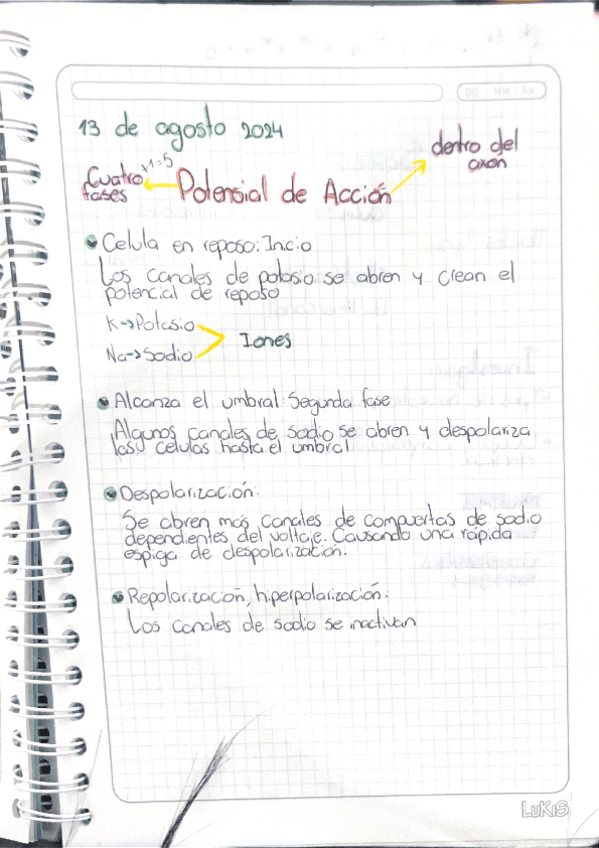 13 de agosto 2024
dentro del
axon
Cuatro +1=5
fases
Potensial de Acción
Celula en reposo: Inicio
Los canales de potasio se abren y crean el
potencial de reposo
K→Potasio
Na→Sodio
Iones
Alcanza el umbral: Segunda fase
Algunos canales de sodio se abren y despolariza
las celulas hasta el umbral
Despolarización:
Se abren más canales de compuertas de sodio
dependientes del voltaje. Causando una rápida
espiga de despolarización.
Repolarización, hiperpolarización:
Los canales de sodio se inactivan
LUKIS